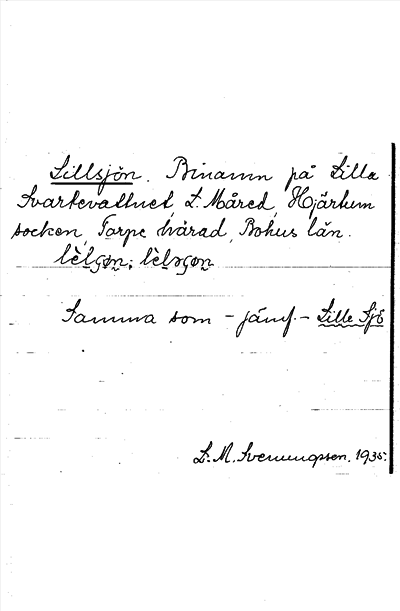 Lillsjön. Binamn på Lilla
Svartevattnet L. Måred, Hjärtum
socken, Torpe härad, Bohus län.
Samma som - jämf. - Lille Sjö
L. M. Svenungsson. 1935.